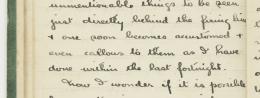 unmentionable things to be seen
just directly behind the firing line
+ one soon becomes accustomed +
even callous to them as I have
done within the last fortnight.
Now I wonder if it is possible